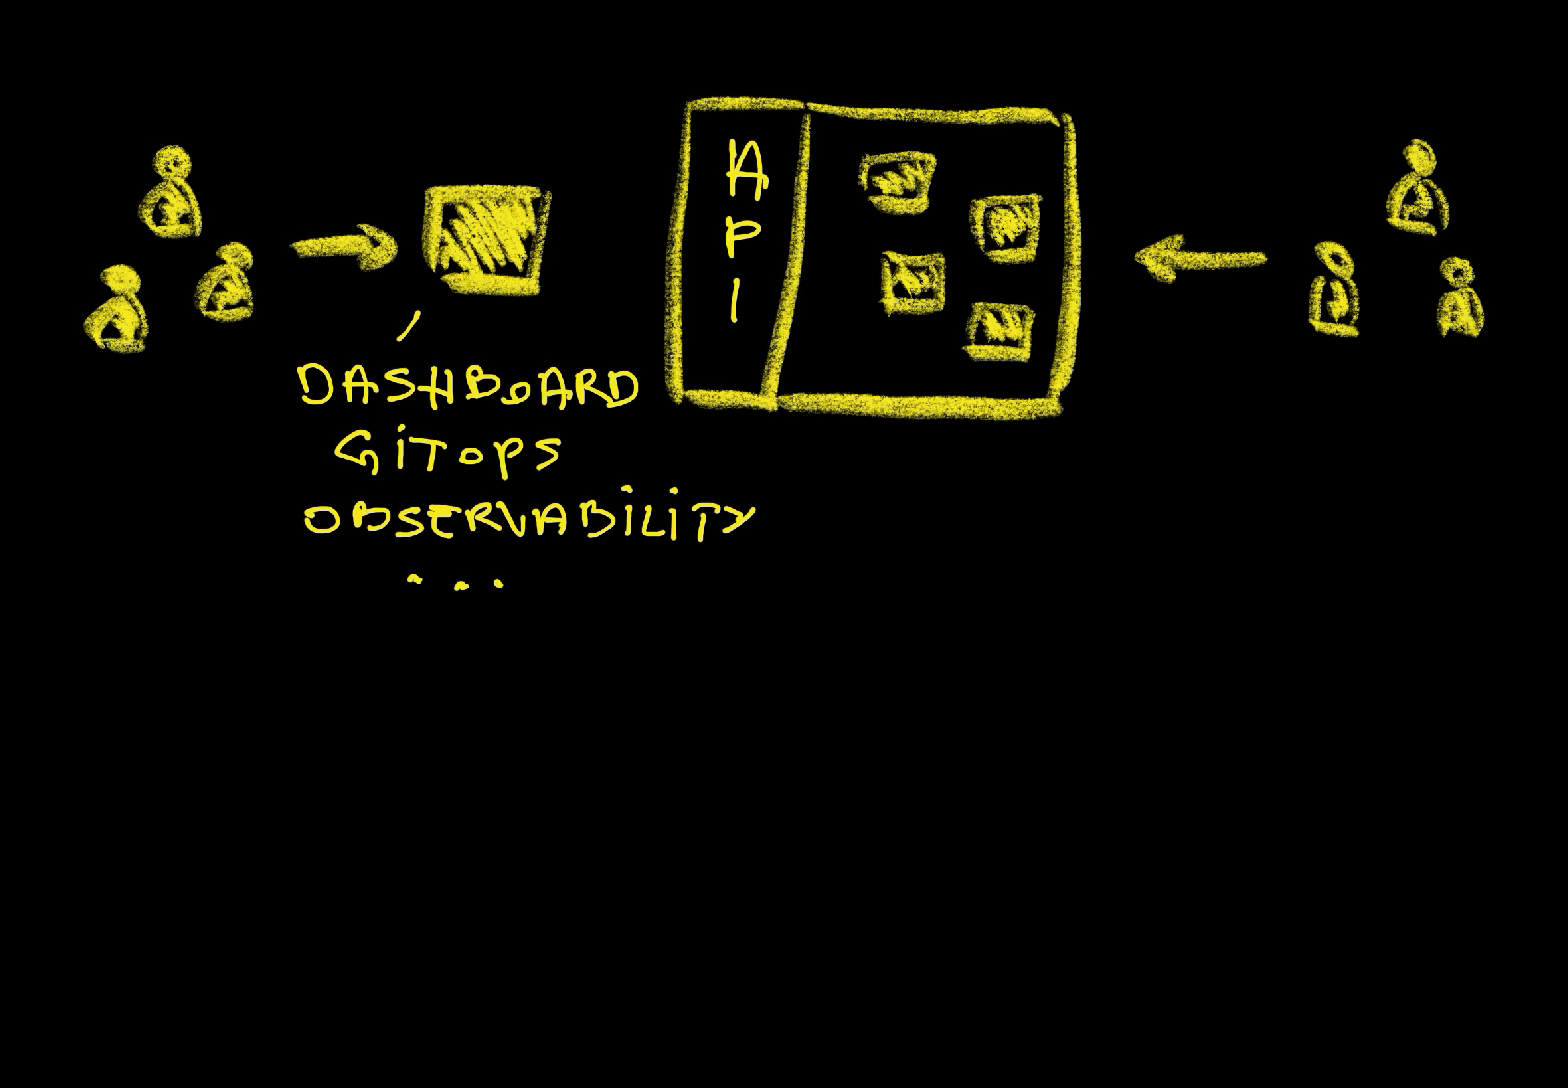 API
DASHBOARD
GITOPS
OBSERVABILITY
...